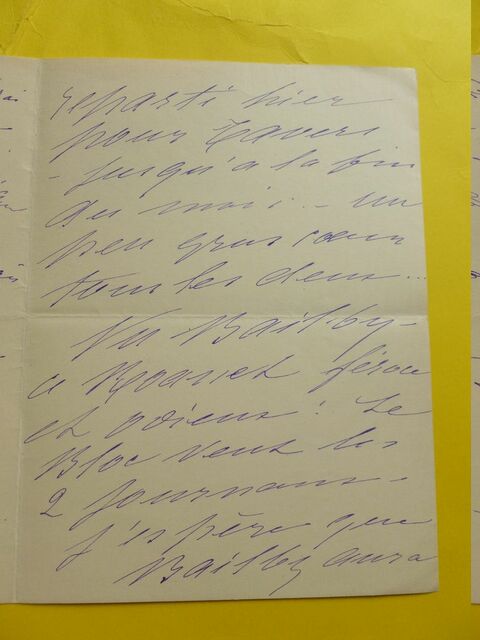 reparti hier
pour Tavers
- jusqu'à la fin
du mois .. - un
peu gros cœur
tous les deux...
Vu Bailby -
et odieux : Le
Bloc veut les
2 journaux -
j'espère que
Bailby aura